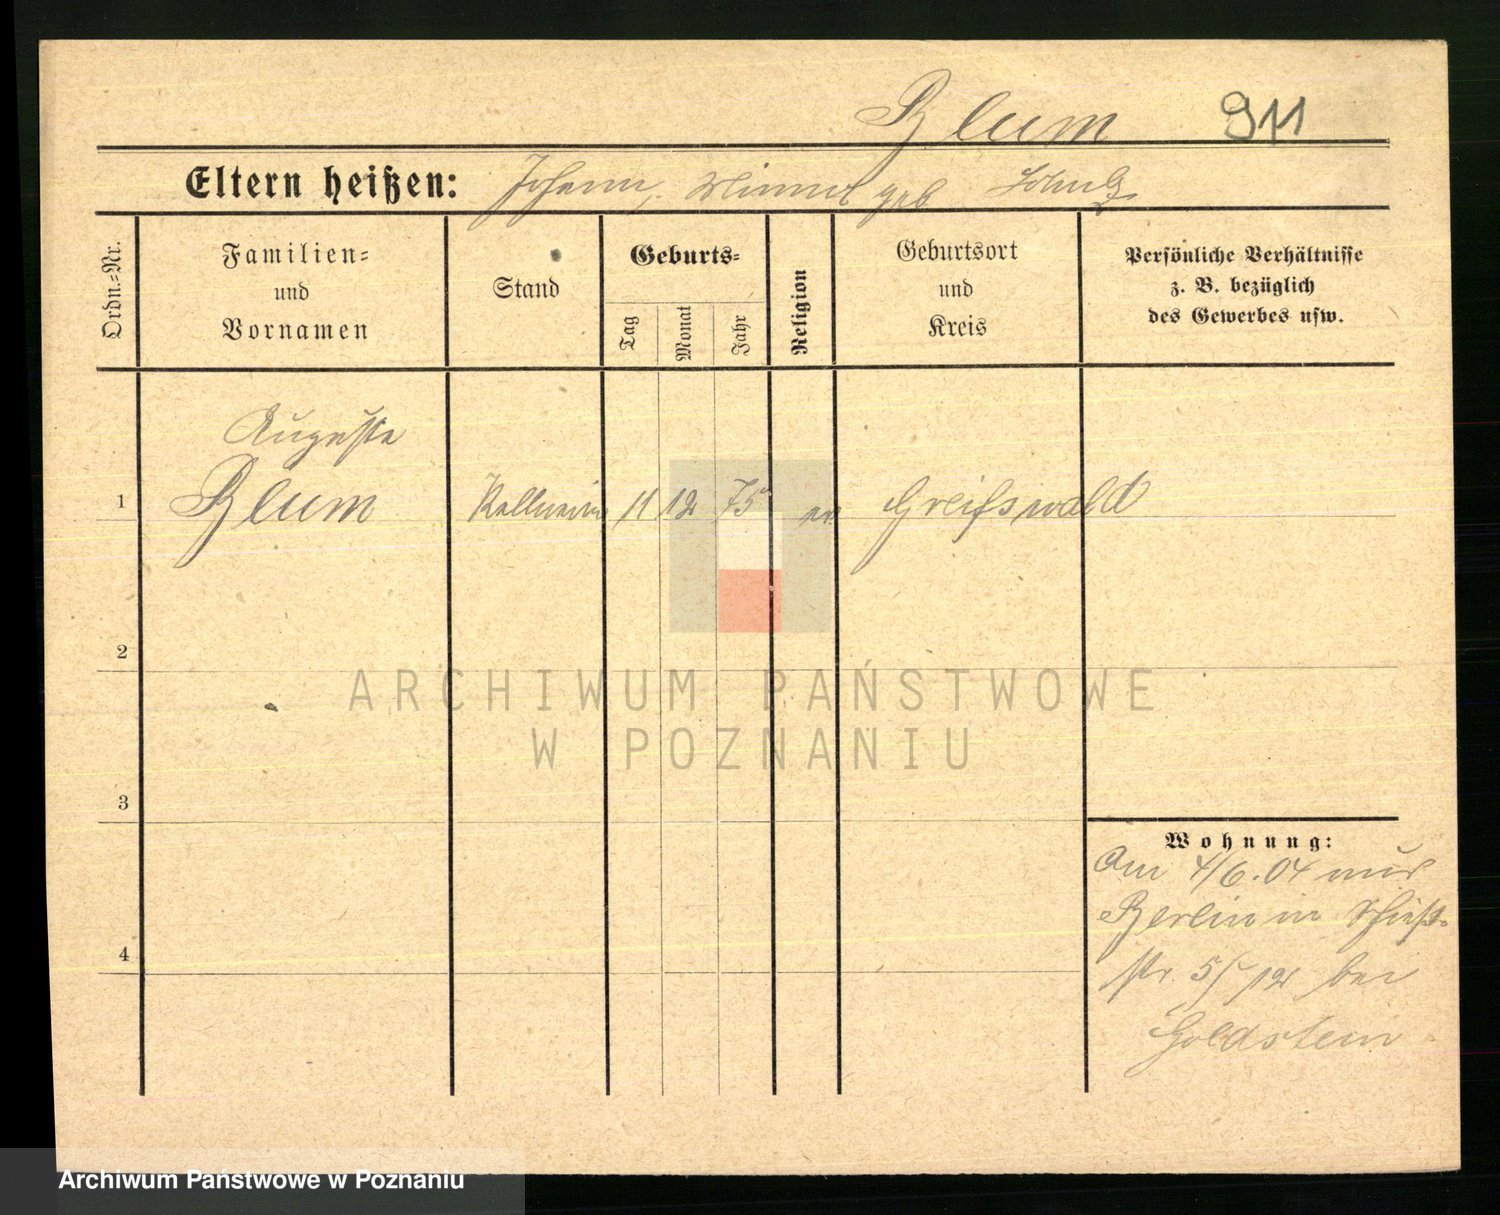 Blum 911
Eltern heißen: Johann, geb Schulz
Ordn.-Nr.
Familien-
und
Vornamen
Stand
Geburts-
Tag
Monat
Jahr
Religion
Geburtsort
und
Kreis
Persönliche Verhältnisse
z. B. bezüglich
des Gewerbes usw.
Auguste
1 Blum Kellnerin 11 12 75 ev Greifswald
2
3
4
Wohnung:
Am 4/6.04 aus
Berlin in Schieß-
str. 5/ 12 bei
Goldstein
ARCHIWUM PAŃSTWOWE
W POZNANIU
Archiwum Państwowe w Poznaniu